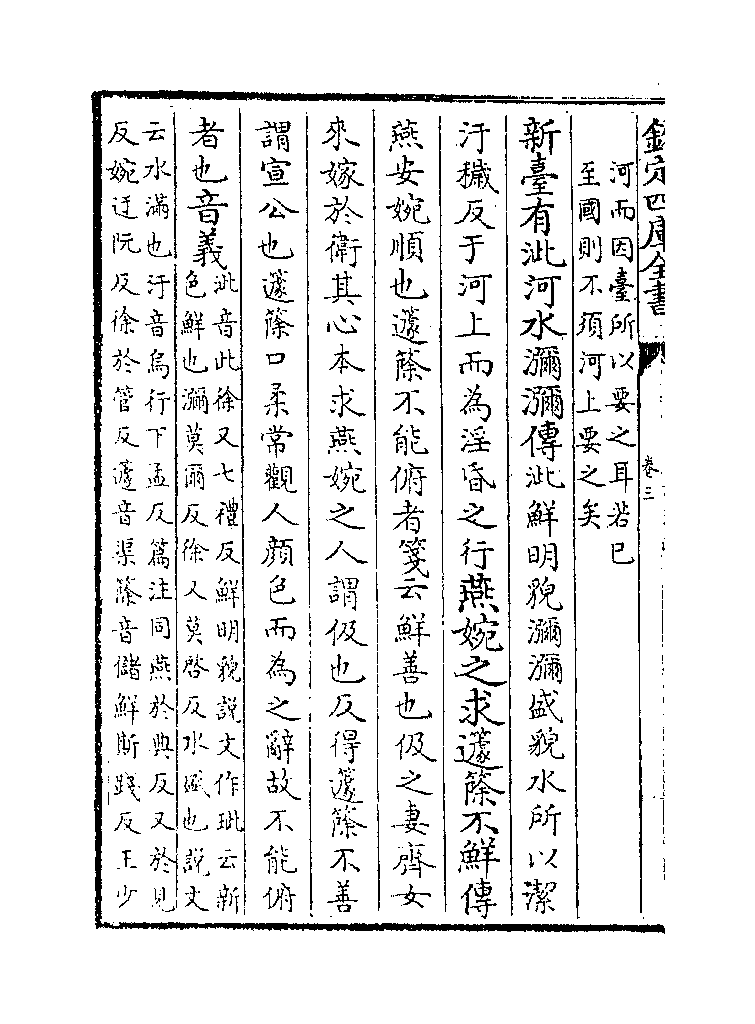 欽定四庫全書
卷三
河而因臺所以要之耳若已
至國則不須河上要之矣
新臺有泚河水瀰瀰傳泚鮮明貌瀰瀰盛貌水所以潔
汙穢反于河上而為淫昏之行燕婉之求籧篨不鮮傳
燕安婉順也籧篨不能俯者箋云鮮善也伋之妻齊女
來嫁於衛其心本求燕婉之人謂伋也反得籧篨不善
謂宣公也籧篨口柔常觀人顔色而為之辭故不能俯
者也音義
泚音此徐又七禮反鮮明貌説文作玼云新
色鮮也瀰莫爾反徐又莫啓反水盛也説文
云水滿也汙音烏行下孟反篇注同燕於典反又於見
反婉迂阮反徐於管反籧音渠篨音儲鮮斯踐反王少